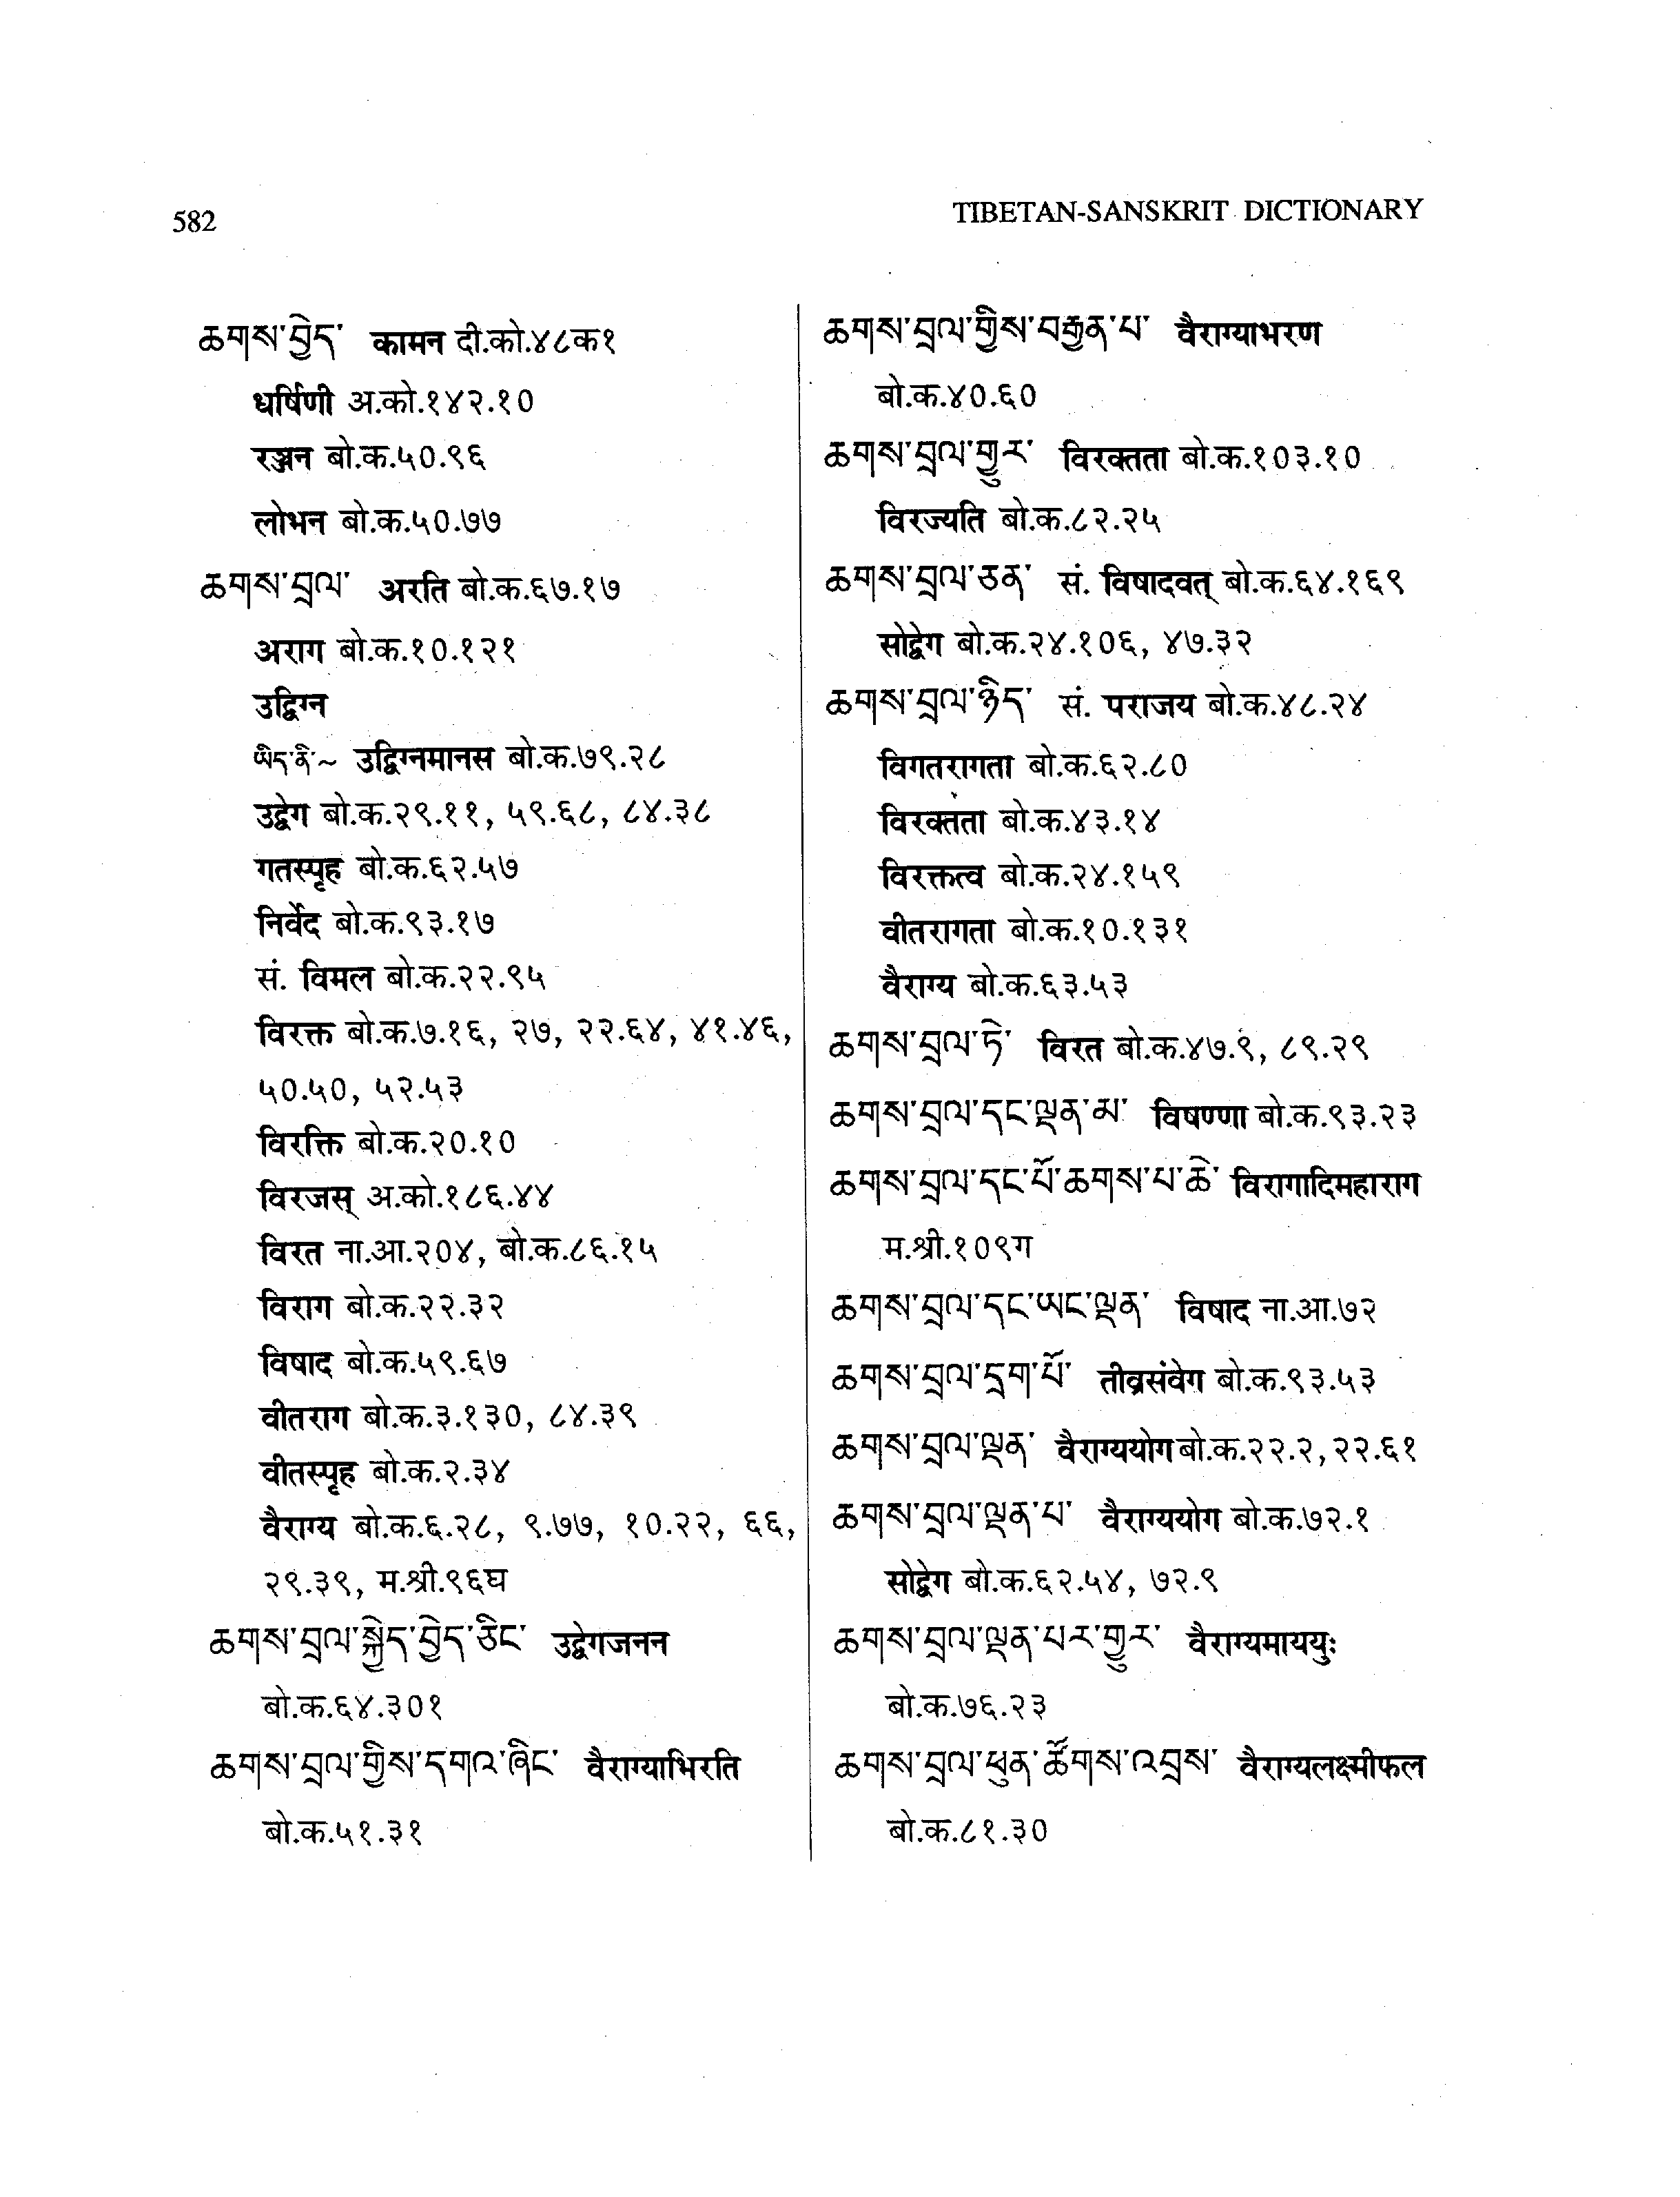 582
TIBETAN-SANSKRIT DICTIONARY
ཆགས་བྱེད་ कामन दी.को.४८क१
धर्षिणी अ.को.१४२.१०
रञ्जन बो.क.५०.९६
लोभन बो.क.५०.७७
ཆགས་བྲལ་ अरति बो.क.६७.१७
अराग बो.क.१०.१२१
उद्विग्न
ཡིད་ནི་~ उद्विग्नमानस बो.क.७९.२८
उद्वेग बो.क.२९.११, ५९.६८, ८४.३८
गतस्पृह बो.क.६२.५७
निर्वेद बो.क.९३.१७
सं. विमल बो.क.२२.९५
विरक्त बो.क.७.१६, २७, २२.६४, ४१.४६,
५०.५०, ५२.५३
विरक्ति बो.क.२०.१०
विरजस् अ.को.१८६.४४
विरत ना.आ.२०४, बो.क.८६.१५
विराग बो.क.२२.३२
विषाद बो.क.५९.६७
वीतराग बो.क.३.१३०, ८४.३९
वीतस्पृह बो.क.२.३४
वैराग्य बो.क.६.२८, ९.७७, १०.२२, ६६,
२९.३९, म.श्री.९६घ
ཆགས་བྲལ་སྐྱེད་བྱེད་ཅིང་ उद्वेगजनन
बो.क.६४.३०१
ཆགས་བྲལ་གྱིས་དགའ་ཞིང་ वैराग्याभिरति
बो.क.५१.३१
ཆགས་བྲལ་གྱིས་བརྒྱན་པ་ वैराग्याभरण
बो.क.४०.६०
ཆགས་བྲལ་གྱུར་ विरक्तता बो.क.१०३.१०
विरज्यति बो.क.८२.२५
ཆགས་བྲལ་ཅན་ सं. विषादवत् बो.क.६४.१६९
सोद्वेग बो.क.२४.१०६, ४७.३२
ཆགས་བྲལ་ཉིད་ सं. पराजय बो.क.४८.२४
विगतरागता बो.क.६२.८०
विरक्तता बो.क.४३.१४
विरक्तत्व बो.क.२४.१५९
वीतरागता बो.क.१०.१३१
वैराग्य बो.क.६३.५३
ཆགས་བྲལ་ཏེ་ विरत बो.क.४७.९, ८९.२९
ཆགས་བྲལ་དང་ལྡན་མ་ विषण्णा बो.क.९३.२३
ཆགས་བྲལ་དང་པོ་ཆགས་པ་ཆེ་ विरागादिमहाराग
म.श्री.१०९ग
ཆགས་བྲལ་དང་ཡང་ལྡན་ विषाद ना.आ.७२
ཆགས་བྲལ་དྲག་པོ་ तीव्रसंवेग बो.क.९३.५३
ཆགས་བྲལ་ལྡན་ वैराग्ययोग बो.क.२२.२, २२.६१
ཆགས་བྲལ་ལྡན་པ་ वैराग्ययोग बो.क.७२.१
सोद्वेग बो.क.६२.५४, ७२.९
ཆགས་བྲལ་ལྡན་པར་གྱུར་ वैराग्यमाययुः
बो.क.७६.२३
ཆགས་བྲལ་ཕུན་ཚོགས་འབྲས་ वैराग्यलक्ष्मीफल
बो.क.८१.३०